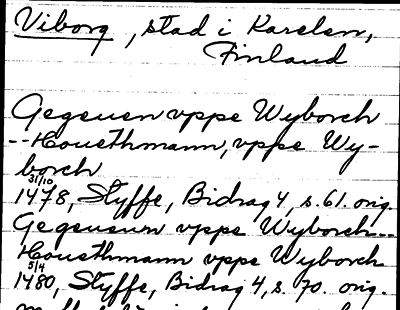 Viborg, stad i Karelen,
Finland
Gegeuen vppe Wyborch
--Houethmann, vppe Wy-
borch
31/10
1478, Styffe, Bidrag 4, s. 61. orig.
Gegeuenn vppe Wyborch...
Houethmann vppe Wyborch
5/4
1480, Styffe, Bidrag 4, s. 70. orig.